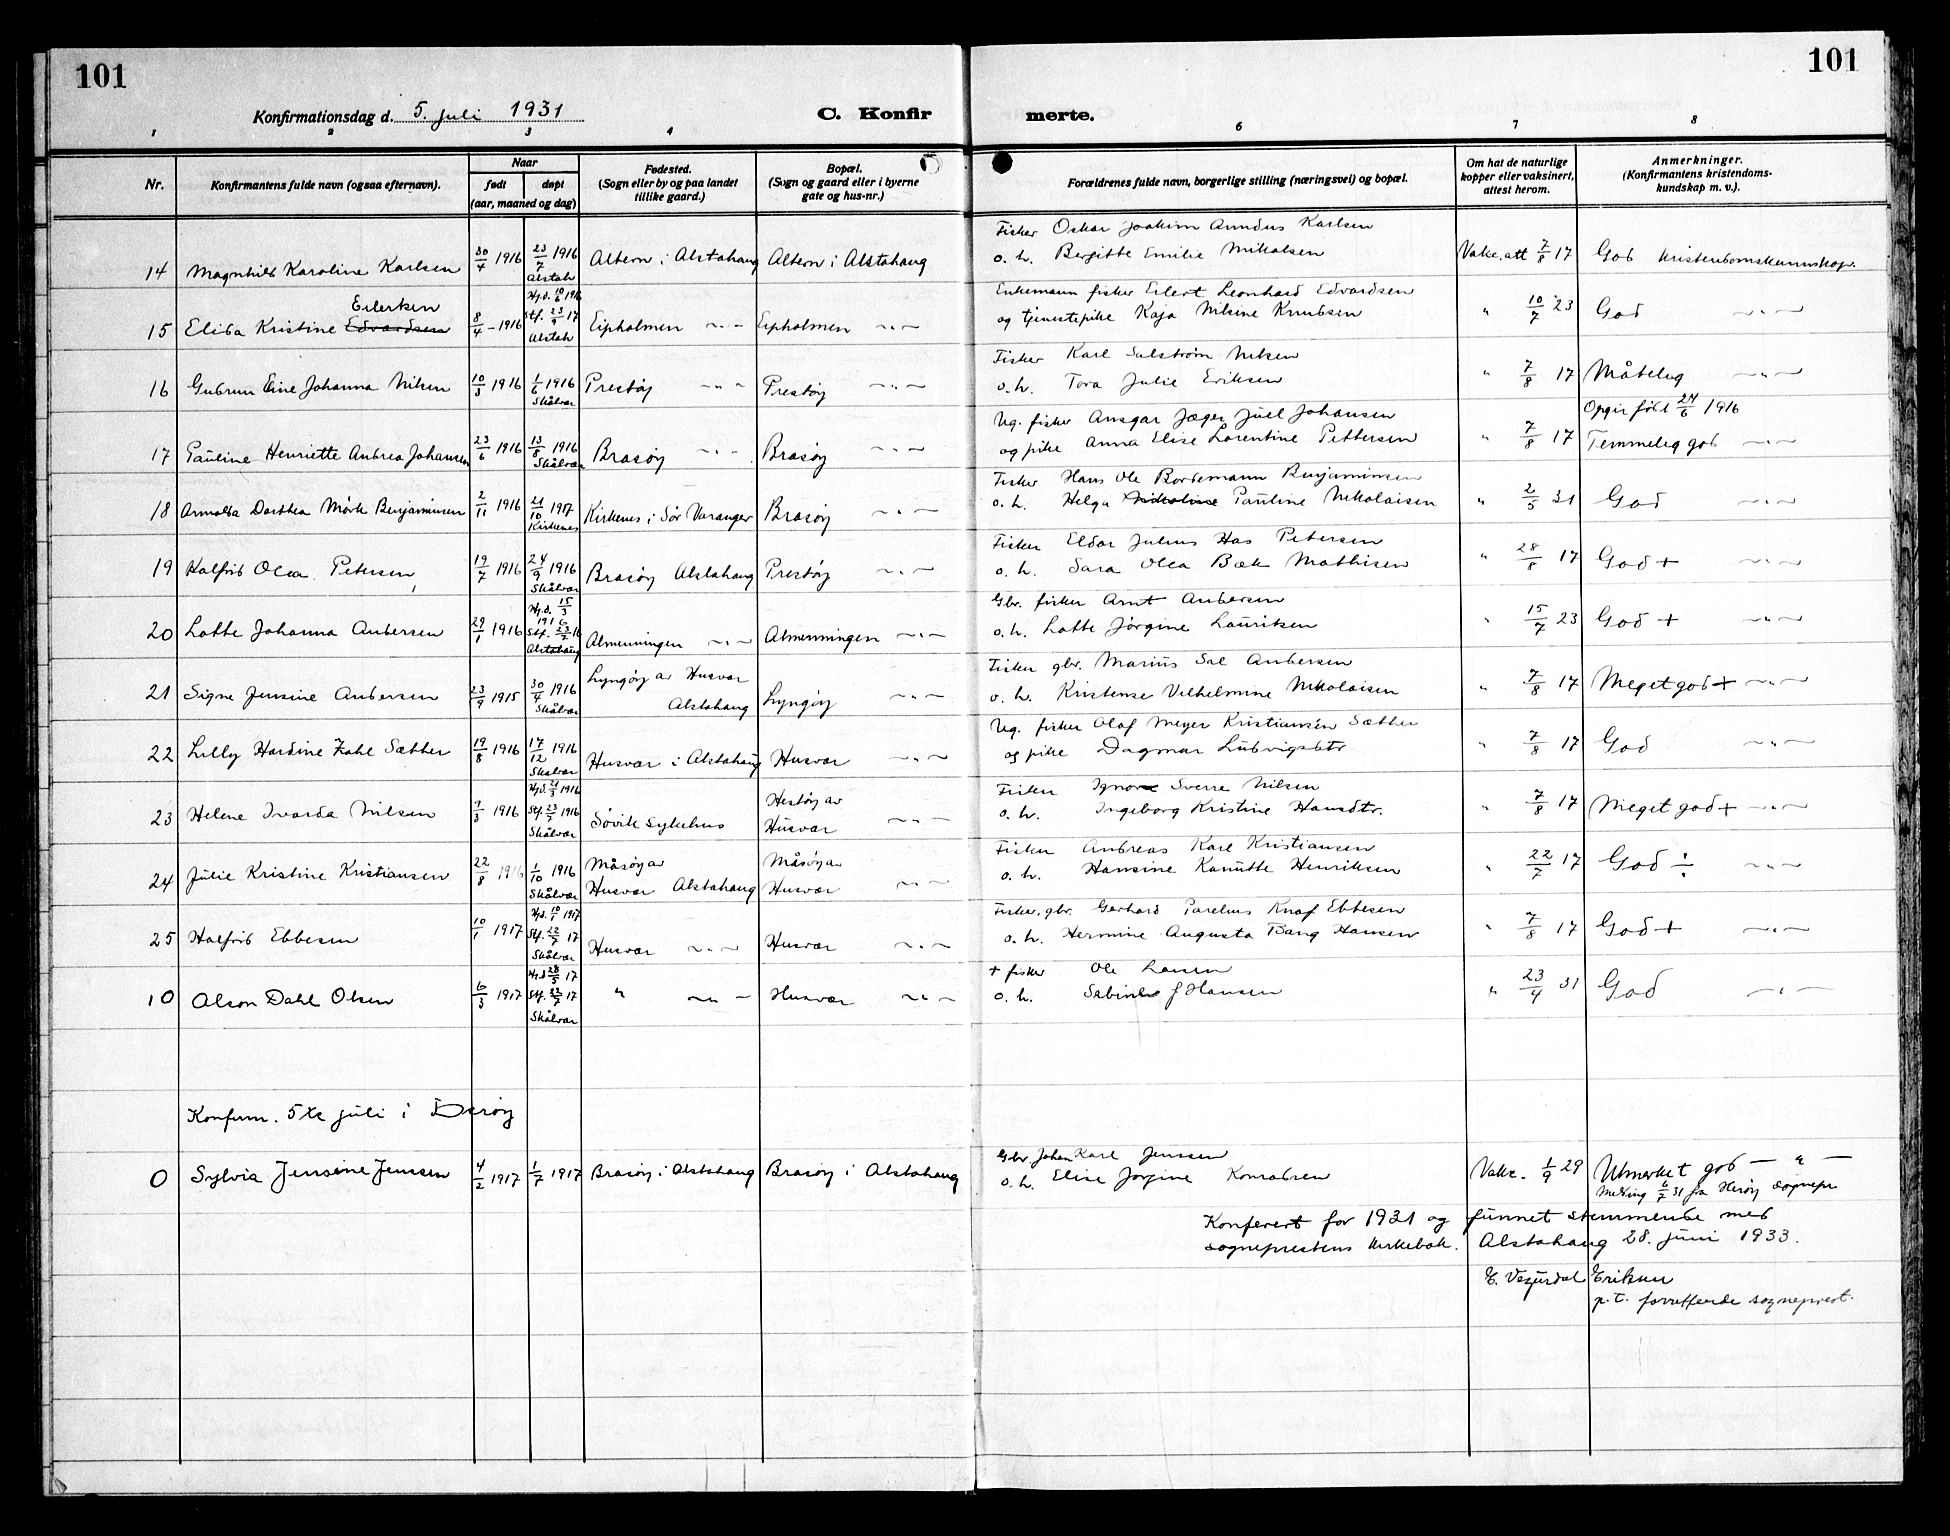 101
101
Konfirmationsdag d. 5. juli 1931
C. Konfir
merte.
1 2 3 4 6 7 8
Nr.
Konfirmantens fulde navn (ogsaa efternavn).
Naar
født døpt
(aar, maaned og dag)
Fødested.
(Sogn eller by og paa landet
tillike gaard.)
Bopæl.
(Sogn og gaard eller i byerne
gate og hus-nr.)
Forældrenes fulde navn, borgerlige stilling (næringsvei) og bopæl.
Om hat de naturlige
kopper eller vaksinert,
attest herom.
Anmerkninger.
(Konfirmantens kristendoms-
kundskap m. v.).
Fisker Oskar Joakim Amndus Karlsen
14 Magnhild Karoline Karlsen 30/4 1916 23/7 1916 Alstah Altern i Alstahaug Altern i Alstahaug o. h. Bergitte Emilie Mikalsen Vakc. att 7/8 17 God kristendomskunnskap.
Eilerksen Hj.d. 10/6 1916 Enkemann fisker Eilert Leonhard Edvardsen
15 Elida Kristine Edvardsen 8/4 - 1916 Stf. 23/9 17 Alstah Eipholmen ~ " ~ Eipholmen ~ " ~ og tjenestepike Kaja Nilsine Knudsen " 10/7 23 God ~ " ~
Fisker Karl Salstrøm Nilsen
16 Gudrun Eine Johanna Nilsen 10/3 1916 1/6 1916 Skålvær Prestøy ~ " ~ Prestøy ~ " ~ o. h. Tora Julie Eriksen " 7/8 17 Måtelig ~ " ~
Ug. fisker Ansgar Jæger Juel Johansen Opgir født 24/6 1916
17 Pauline Henriette Andrea Johansen 23/6 1916 13/8 1916 Skålvær Brasøy ~ " ~ Brasøy ~ " ~ og pike Anna Elise Lorentine Pettersen " 7/8 17 Temmelig god ~ " ~
Fisker Hans Ole Bordemann Benjaminsen
18 Armalda Dorthea Mørk Benjaminsen 2/11 1916 21/10 1917 Kirkenes Kirkenes i Sør Varanger Brasøy ~ " ~ o. h. Helga Nikoline Pauline Nikolaisen " 2/5 31 God ~ " ~
Fisker Eldar Julius Has Petersen
19 Halfrid Olea Petersen 19/7 1916 24/9 1916 Skålvær Brasøy Alstahaug Prestøy ~ " ~ o. h. Sara Olea Bæk Mathisen " 28/8 17 God + ~ " ~
Hj.d. 15/3 1916 Gbr. fisker Arnt Andersen
20 Lotte Johanna Andersen 29/1 1916 Stf. 23/7 16 Alstahaug Almenningen ~ " ~ Almenningen ~ " ~ o. h. Lotte Jørgine Lauritsen " 15/7 23 God + ~ " ~
Lyngøy av Husvær Fisker gbr. Marius Sal Andersen
21 Signe Jensine Andersen 23/9 1915 30/4 1916 Skålvær Alstahaug Lyngøy ~ " ~ o. h. Kristense Vilhelmine Nikolaisen " 7/8 17 Meget god + ~ " ~
Ug. fisker Olaf Meyer Kristiansen Sæther
22 Lilly Hardine Zahl Sæther 19/8 1916 17/12 1916 Skålvær Husvær i Alstahaug Husvær ~ " ~ og pike Dagmar Ludvigsdtr " 7/8 17 God ~ " ~
Hj.d. 21/3 1916 Hestøy av Fisker Ignor Sverre Nilsen
23 Helene Ivarda Nilsen 7/3 1916 Stf. 23/7 1916 Skålvær Søvik sykehus Husvær ~ " ~ o. h. Ingeborg Kristine Hansdtr. " 7/8 17 Meget god + ~ " ~
Måsøy av Måsøy av Fisker Andreas Karl Kristiansen
24 Julie Kristine Kristiansen 22/8 1916 1/10 1916 Skålvær Husvær Alstahaug Husvær ~ " ~ o. h. Hansine Kanutte Henriksen " 22/7 17 God ÷ ~ " ~
Hj.d. 10/1 1917 Fisker, gbr. Gerhard Parelius Knof Ebbesen
25 Halfrid Ebbesen 10/1 1917 Stf. 22/7 17 Skålvær Husvær ~ " ~ Husvær ~ " ~ o. h. Hermine Augusta Bang Hansen " 7/8 17 God + ~ " ~
Hj.d 28/5 17 + fisker Ole Lausen
10 Alson Dahl Olsen 6/3 1917 Stf. 22/7 17 Skålvær " ~ " ~ Husvær ~ " ~ o. h. Sabine J Hansen " 23/4 31 God ~ " ~
Konfirm. 5te juli i Herøy
Gbr. Johan Karl Jenssen
0 Sylvia Jensine Jenssen 4/2 1917 1/7 1917 Brasøy i Alstahaug Brasøy i Alstahaug o. h. Elise Jørgine Konradsen Vakc. 1/9 29 Utmerket god — " —
Melding 6/7 31 fra Herøy sognepr.
Konferert for 1931 og funnet stemmende med
sogneprestens kirkebok. Alstahaug 28. juni 1933.
E. Vegusdal Eriksen
p. t. forrettende sogneprest.